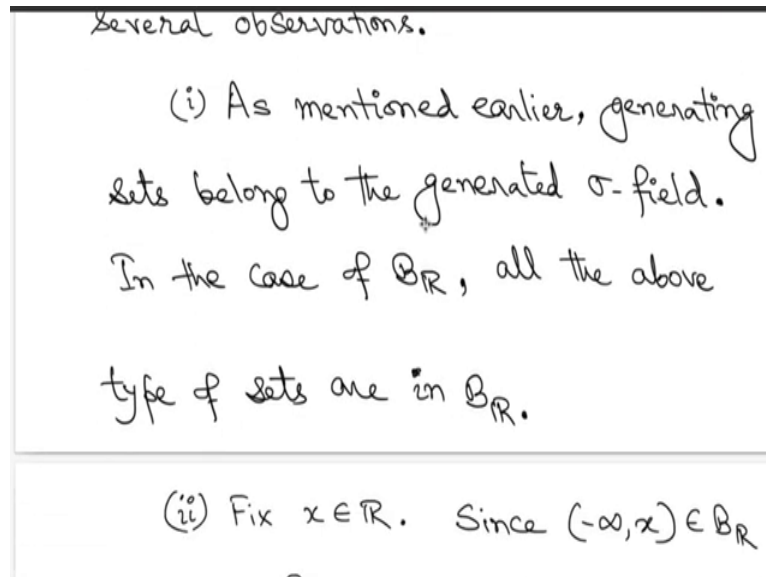 several observations.
(i) As mentioned earlier, generating
sets belong to the generated σ-field.
In the case of 𝔹ℝ, all the above
type of sets are in 𝔹ℝ.
(ii) Fix x ∈ ℝ. Since (-∞, x) ∈ 𝔹ℝ